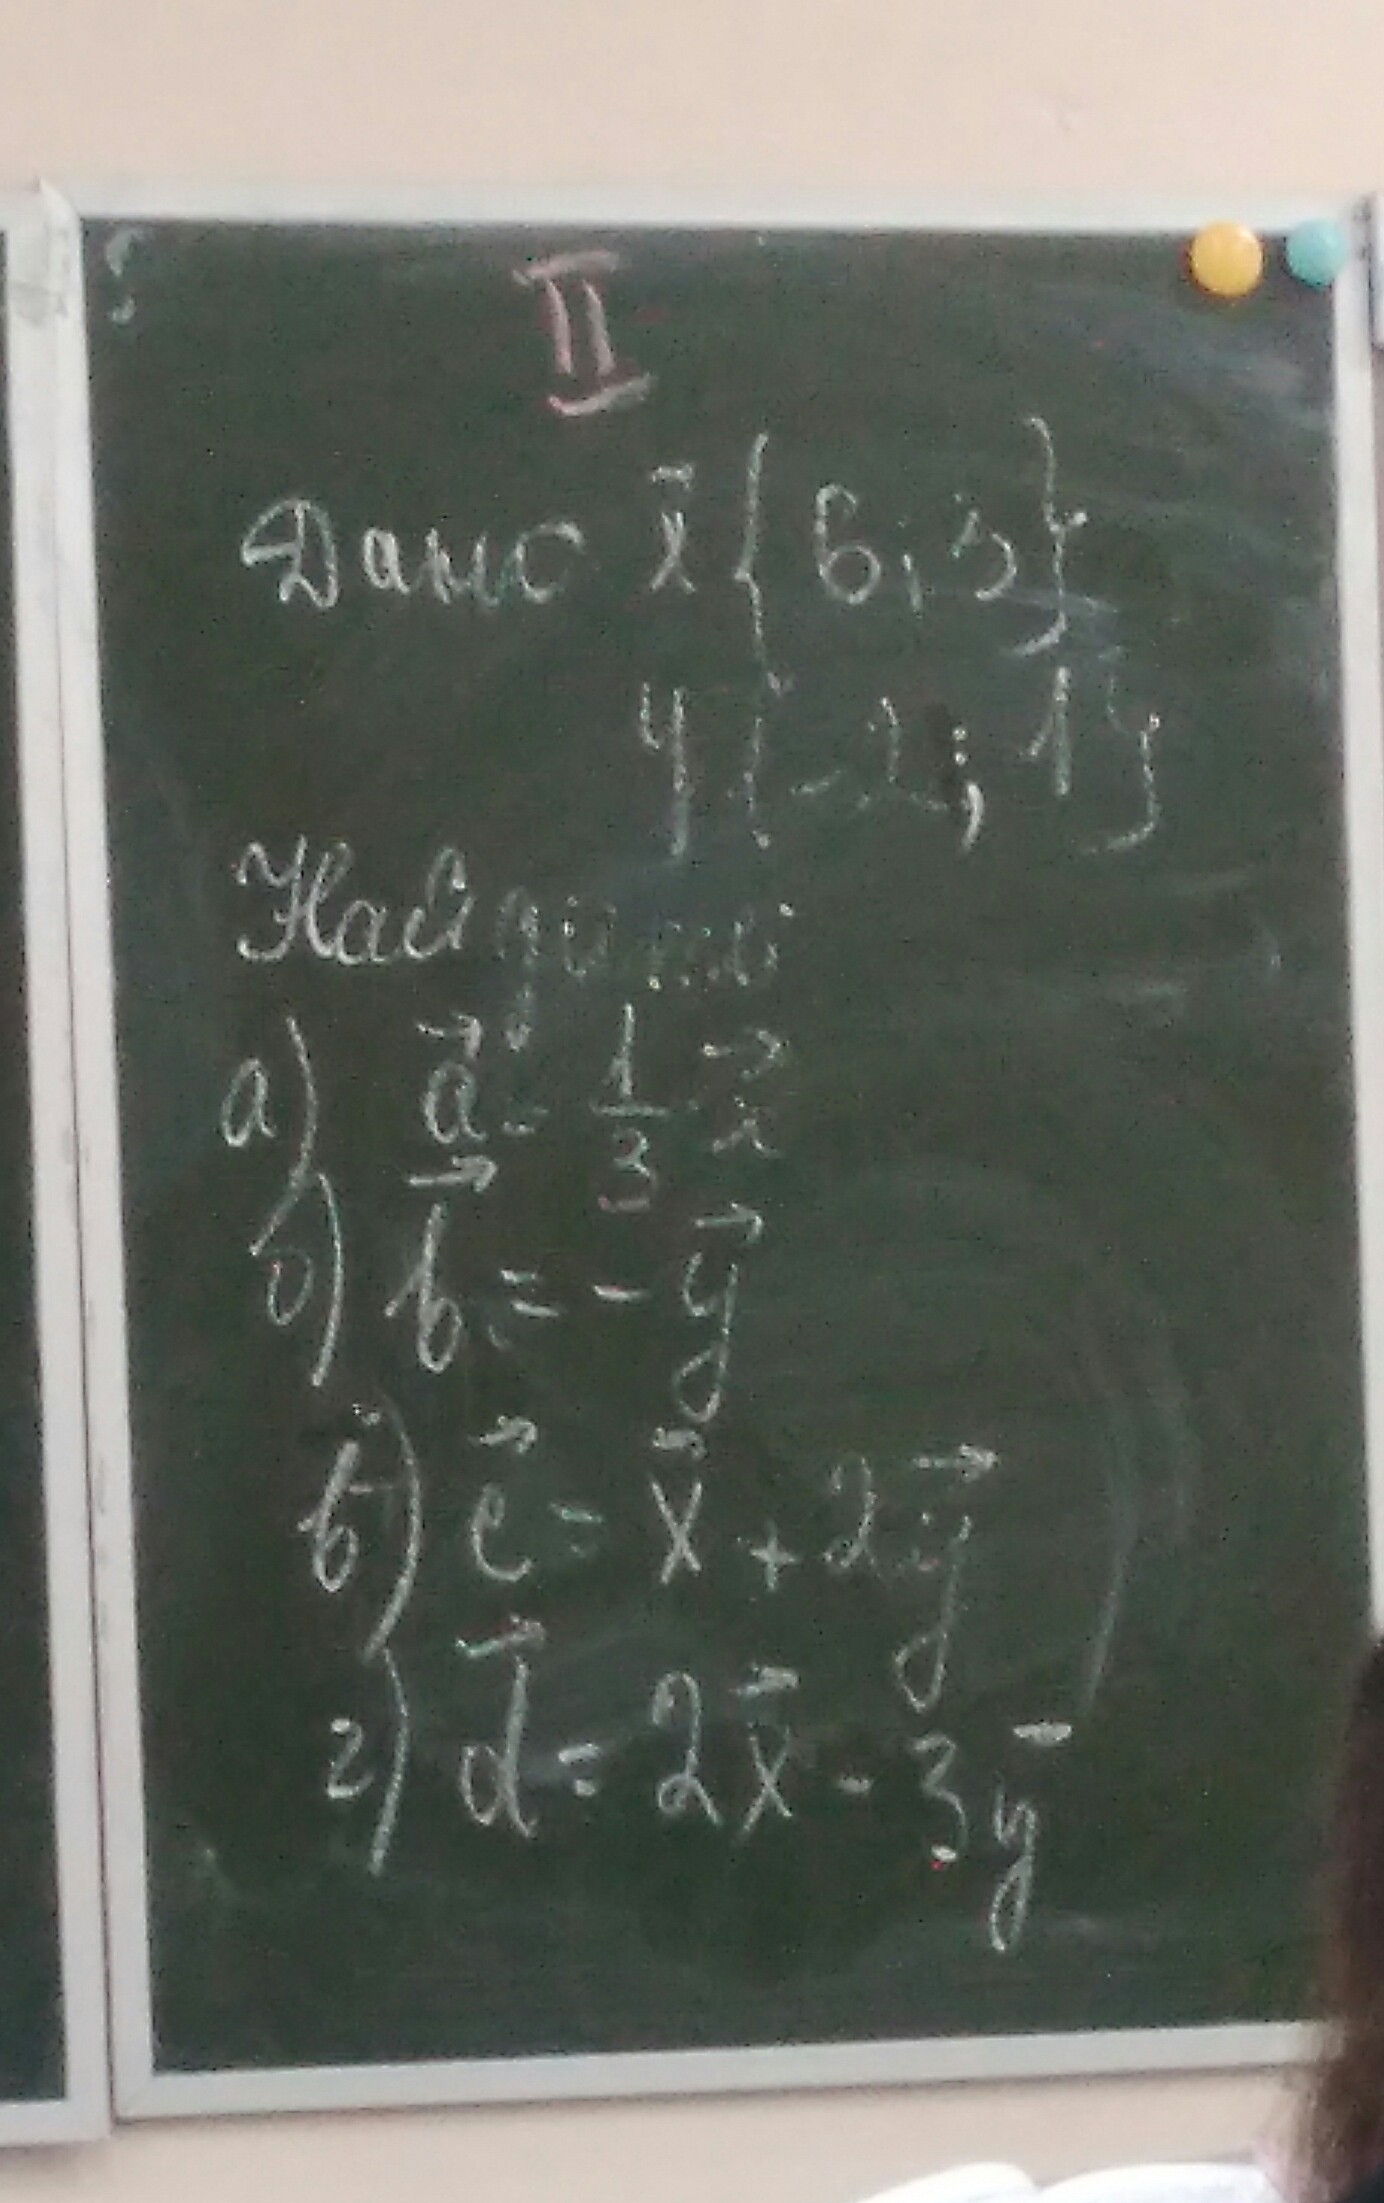 II
Дано x⃗ {6; 3}
y {-2; 1}
Найдите
а) a⃗ = 1/3 x⃗
б) b⃗ = - y⃗
в) c⃗ = x⃗ + 2y⃗
г) d⃗ = 2x⃗ - 3y⃗